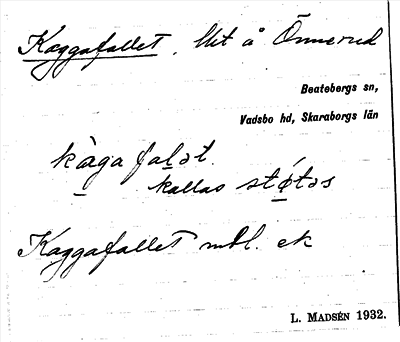 Kaggafallet. Utt å Önnerud
Beatebergs sn,
Vadsbo hd, Skaraborgs län
kàga falət.
kallas støtəs
Kaggafallet mbl. ek
L. MADSÉN 1932.